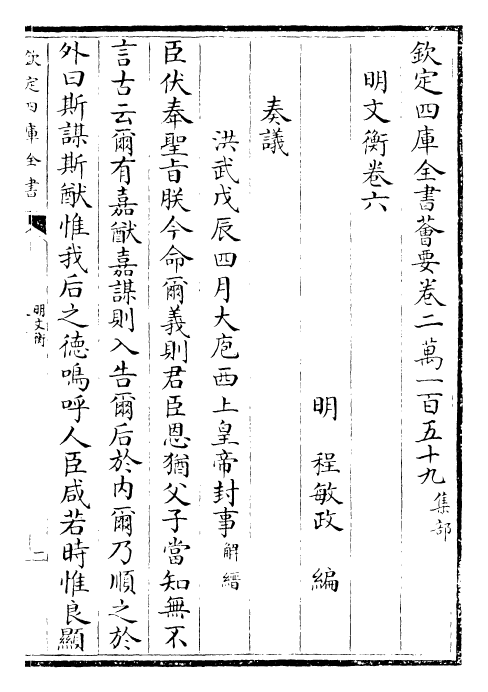 欽定四庫全書薈要卷二萬一百五十九集部
明文衡卷六
明 程敏政 編
奏議
洪武戊辰四月大庖西上皇帝封事解縉
臣伏奉聖旨朕今命爾義則君臣恩猶父子當知無不
言古云爾有嘉猷嘉謀則入告爾后於内爾乃順之於
外曰斯謀斯猷惟我后之德嗚呼人臣咸若時惟良顯
欽定四庫全書
明文衡